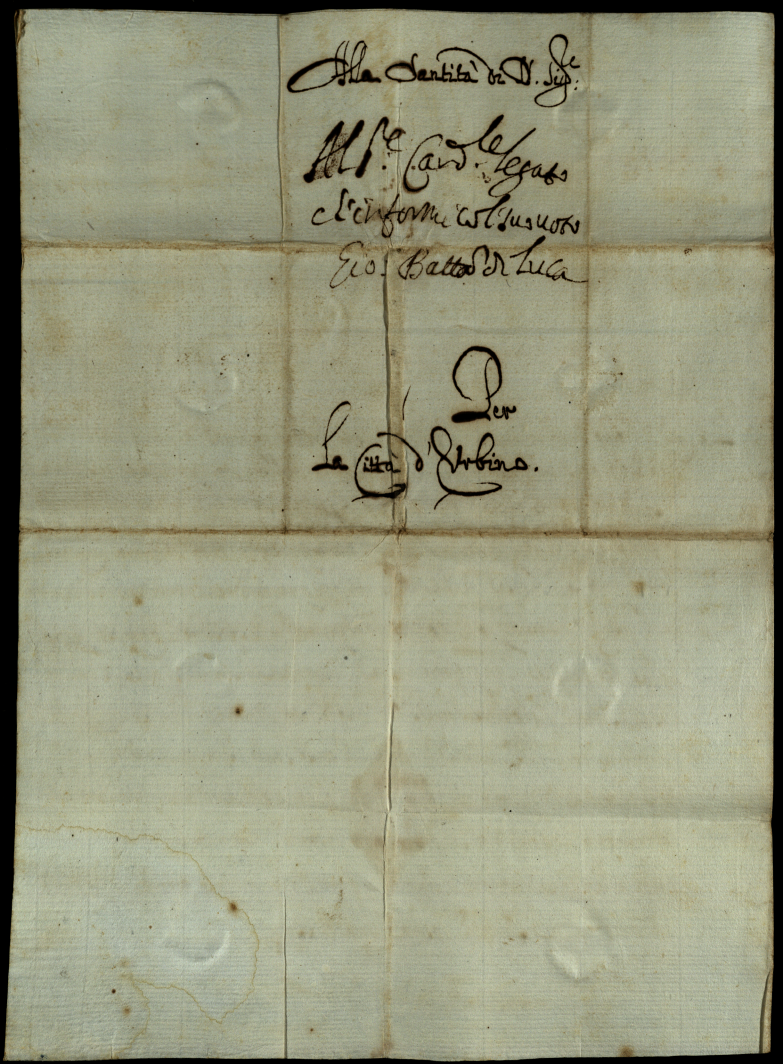 Alla Santità di N. Sig.re
Al S.r Card.le Legato
ch'informi col suo voto
Gio. Batta di Luca
Per
La Città d'Urbino.